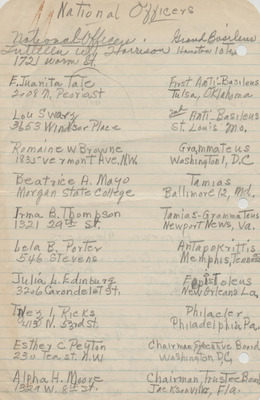 National Officers
National Officers. Grand Basileus
Houston 10 Tex
1721 Worm St.
E. Juanita Tate First Anti-Basileus
2208 N. Peoria St Tulsa, Oklahoma
Lou Swarz 2nd Anti-Basileus
3653 Windsor Place St. Louis Mo.
Romaine W Browne Grammateus
1835 Vermont Ave. N.W. Washington 1, D.C
Beatrice A. Mayo Tamias
Morgan State College Baltimore 12, Md.
Irma B. Thompson Tamias-Grammateus
1321 29th St. Newport News, Va.
Lela B. Porter Antapokrittis
546 Stevens Memphis, Tennessee
Julia L. Edinburg Epistoleus
3206 Carondelet St. New Orleans La.
I. Ricks Philacter
N. 53rd St. Philadelphia Pa.
Esther C. Peyton Chairman Executive Board
230 Tea St. N.W Washington D.C,
Alpha H. Moore Chairman Trustee Board
1329 W. 8th St. Jacksonville, Fla.